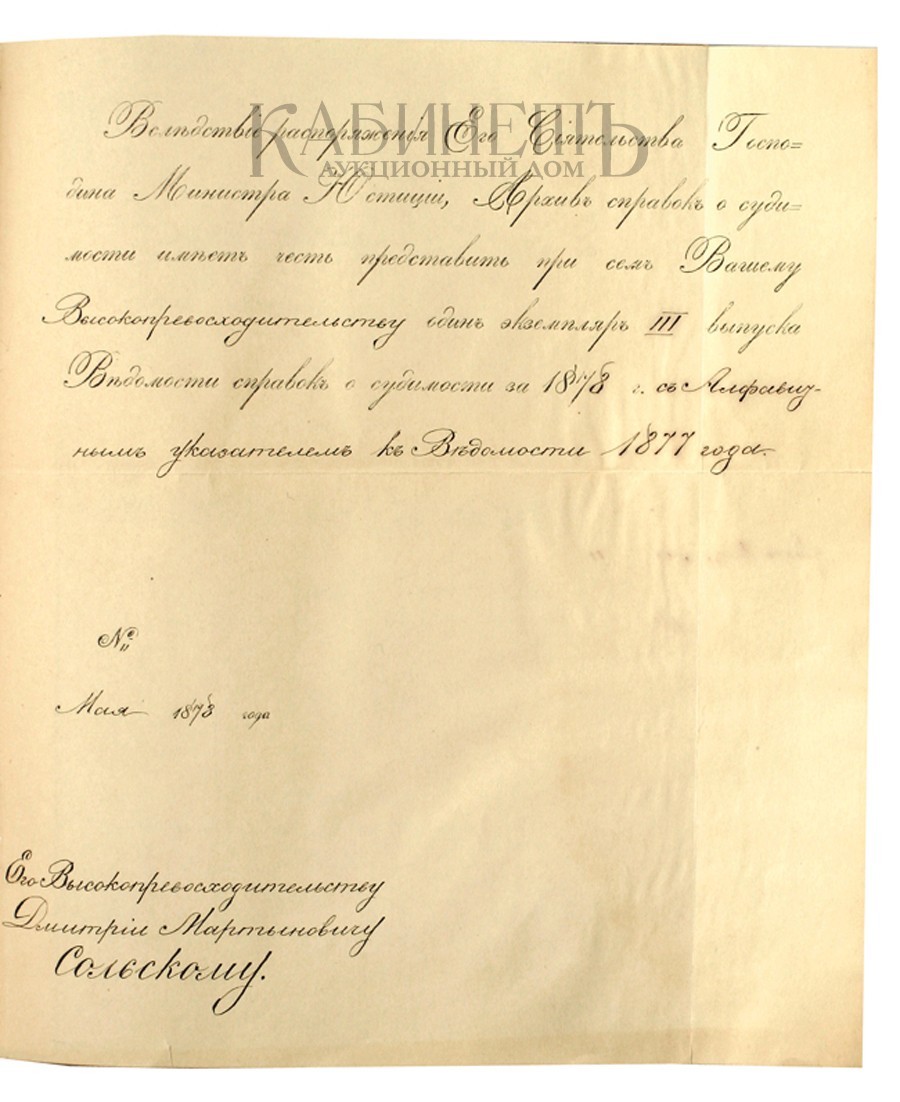 КАБИНЕТЪ
АУКЦИОННЫЙ ДОМ
Вслѣдствіе распоряженія Его Сіятельства Госпо=
дина Министра Юстиціи, Архивъ справокъ о суди=
мости имѣетъ честь представить при семъ Вашему
Высокопревосходительству одинъ экземпляръ III выпуска
Вѣдомости справокъ о судимости за 1878 г. съ Алфавит-
нымъ указателемъ къ Вѣдомости 1877 года.
№
Мая 1878 года
Его Высокопревосходительству
Дмитрію Мартыновичу
Сольскому.